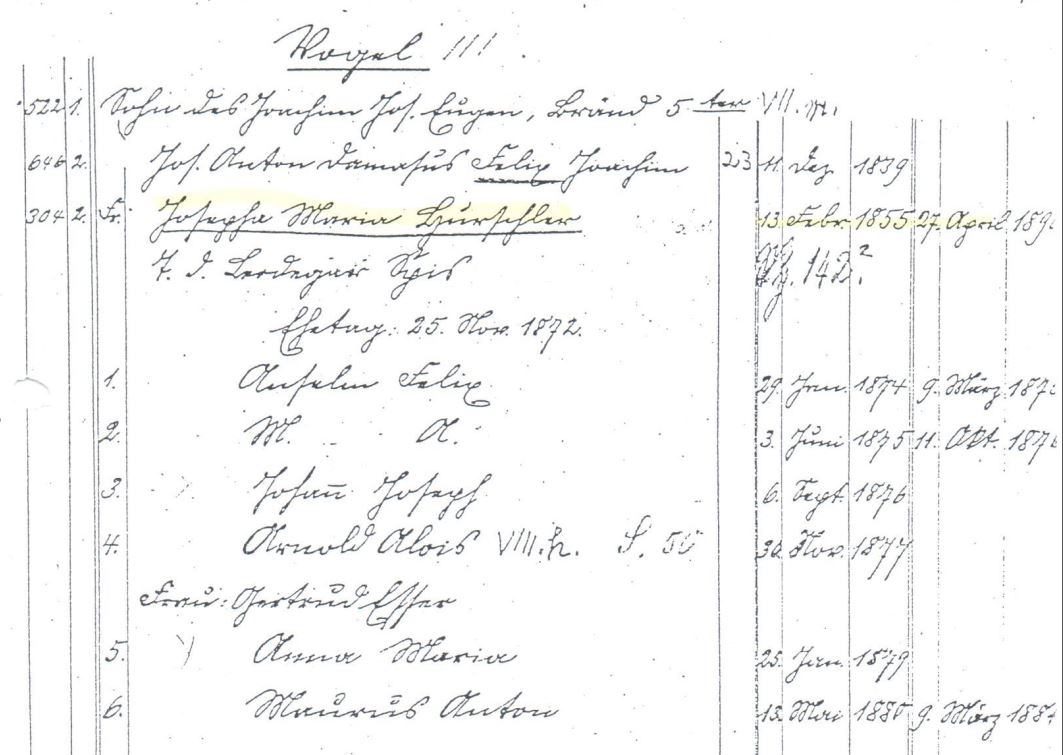 Vogel III
522 1. Sohn des Joachim Jos. Eugen, Bränd 5ter VII.
646 2. Jos. Anton Damasus Felix Joachim 23 11. Dez. 1839
304 2. Fr. Josepha Maria Hurschler 13. Febr. 1855 27. April 189
T. d. Leodegar Spis 142.²
Ehetag: 25. Nov. 1872.
1. Anselm Felix 29. Jan. 1874 9. März 187
2. M. A. 3. Juni 1875 11. Okt. 187
3. Johann Joseph 6. Sept. 1876
4. Arnold Alois VIII.h. S. 50 30. Nov. 1877
Frau: Gertrud Esser
5. Anna Maria 25. Jan. 1879
6. Maurus Anton 13. Mai 1880 9. März 188